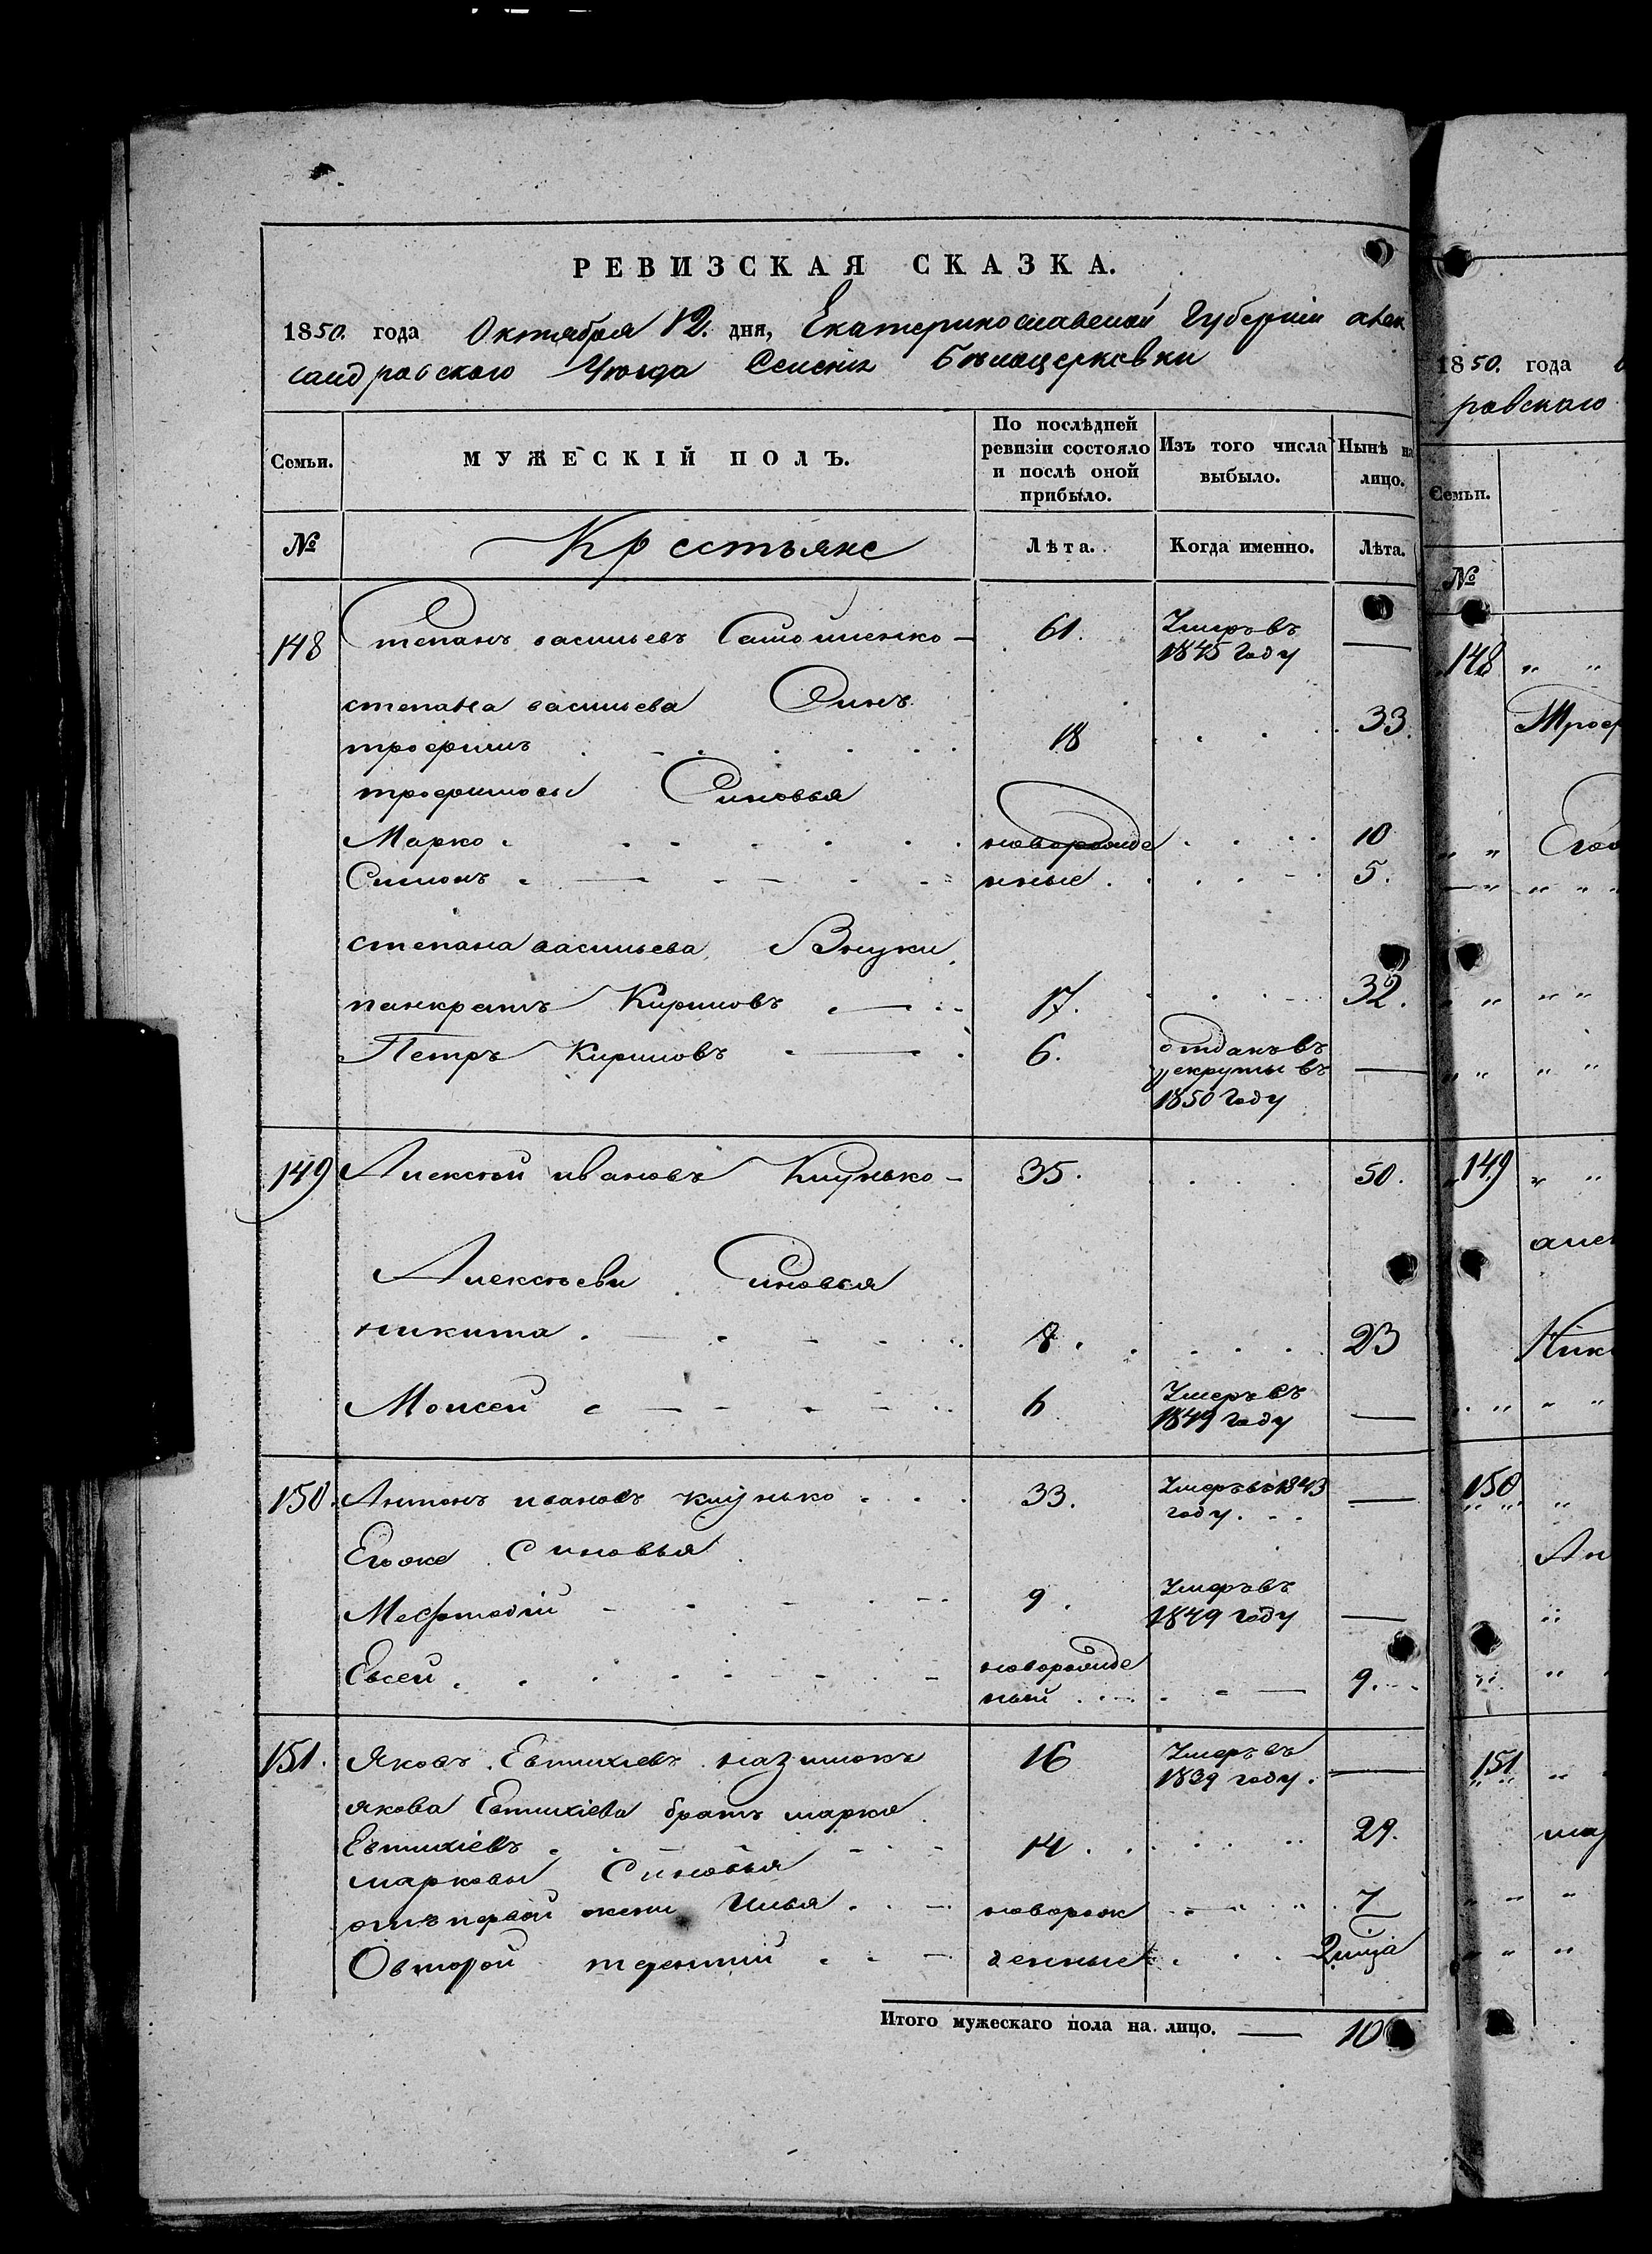 РЕВИЗСКАЯ СКАЗКА.
1850. года Октября 12. дня, Екатеринославской Губерніи алек
сандровского Уезда Селенія Белоцерковки
Семьи. МУЖЕСКІЙ ПОЛЪ. По послѣдней ревизіи состояло и послѣ оной прибыло. Изъ того числа выбыло. Нынѣ на лицо.
№ Крестьяне Лѣта. Когда именно. Лѣта.
148 Степанъ васильевъ 61. Умеръ въ 1845 Году —
степана васильева Синъ
трофимъ 18 33.
трофимовы Синовья
Марко новорожде 10
Симонъ нные 5.
степана васильева Внуки
панкратъ Кириловъ 17. 32.
Петръ Кириловъ 6. отданъ въ рекруты въ 1850 Году —
149 Алексей ивановъ Клунько 35. 50.
Алексѣеви Синовья
никита 8. 23
Моисей 6 Умеръ въ 1849 году —
150. Антонъ ивановъ клунько 33. Умеръ въ 1843 году. —
Егоже Синовья
Мефтодій 9. Умеръ въ 1849 году —
Евсей новорожде ный 9.
151. Яковъ Евтихіевъ 16 Умеръ въ 1839 году. —
якова Евтихіева братъ марко
Евтихіевъ 14 29.
марковы Синовья
отъ первой жени Илья новорож 7
Овторой терентій денные 2 мца
Итого мужескаго пола на лицо. — 10
1850. года
ровского
Семьи.
№
148
Троф
149
алек
Ники
150
Ан
151
мар